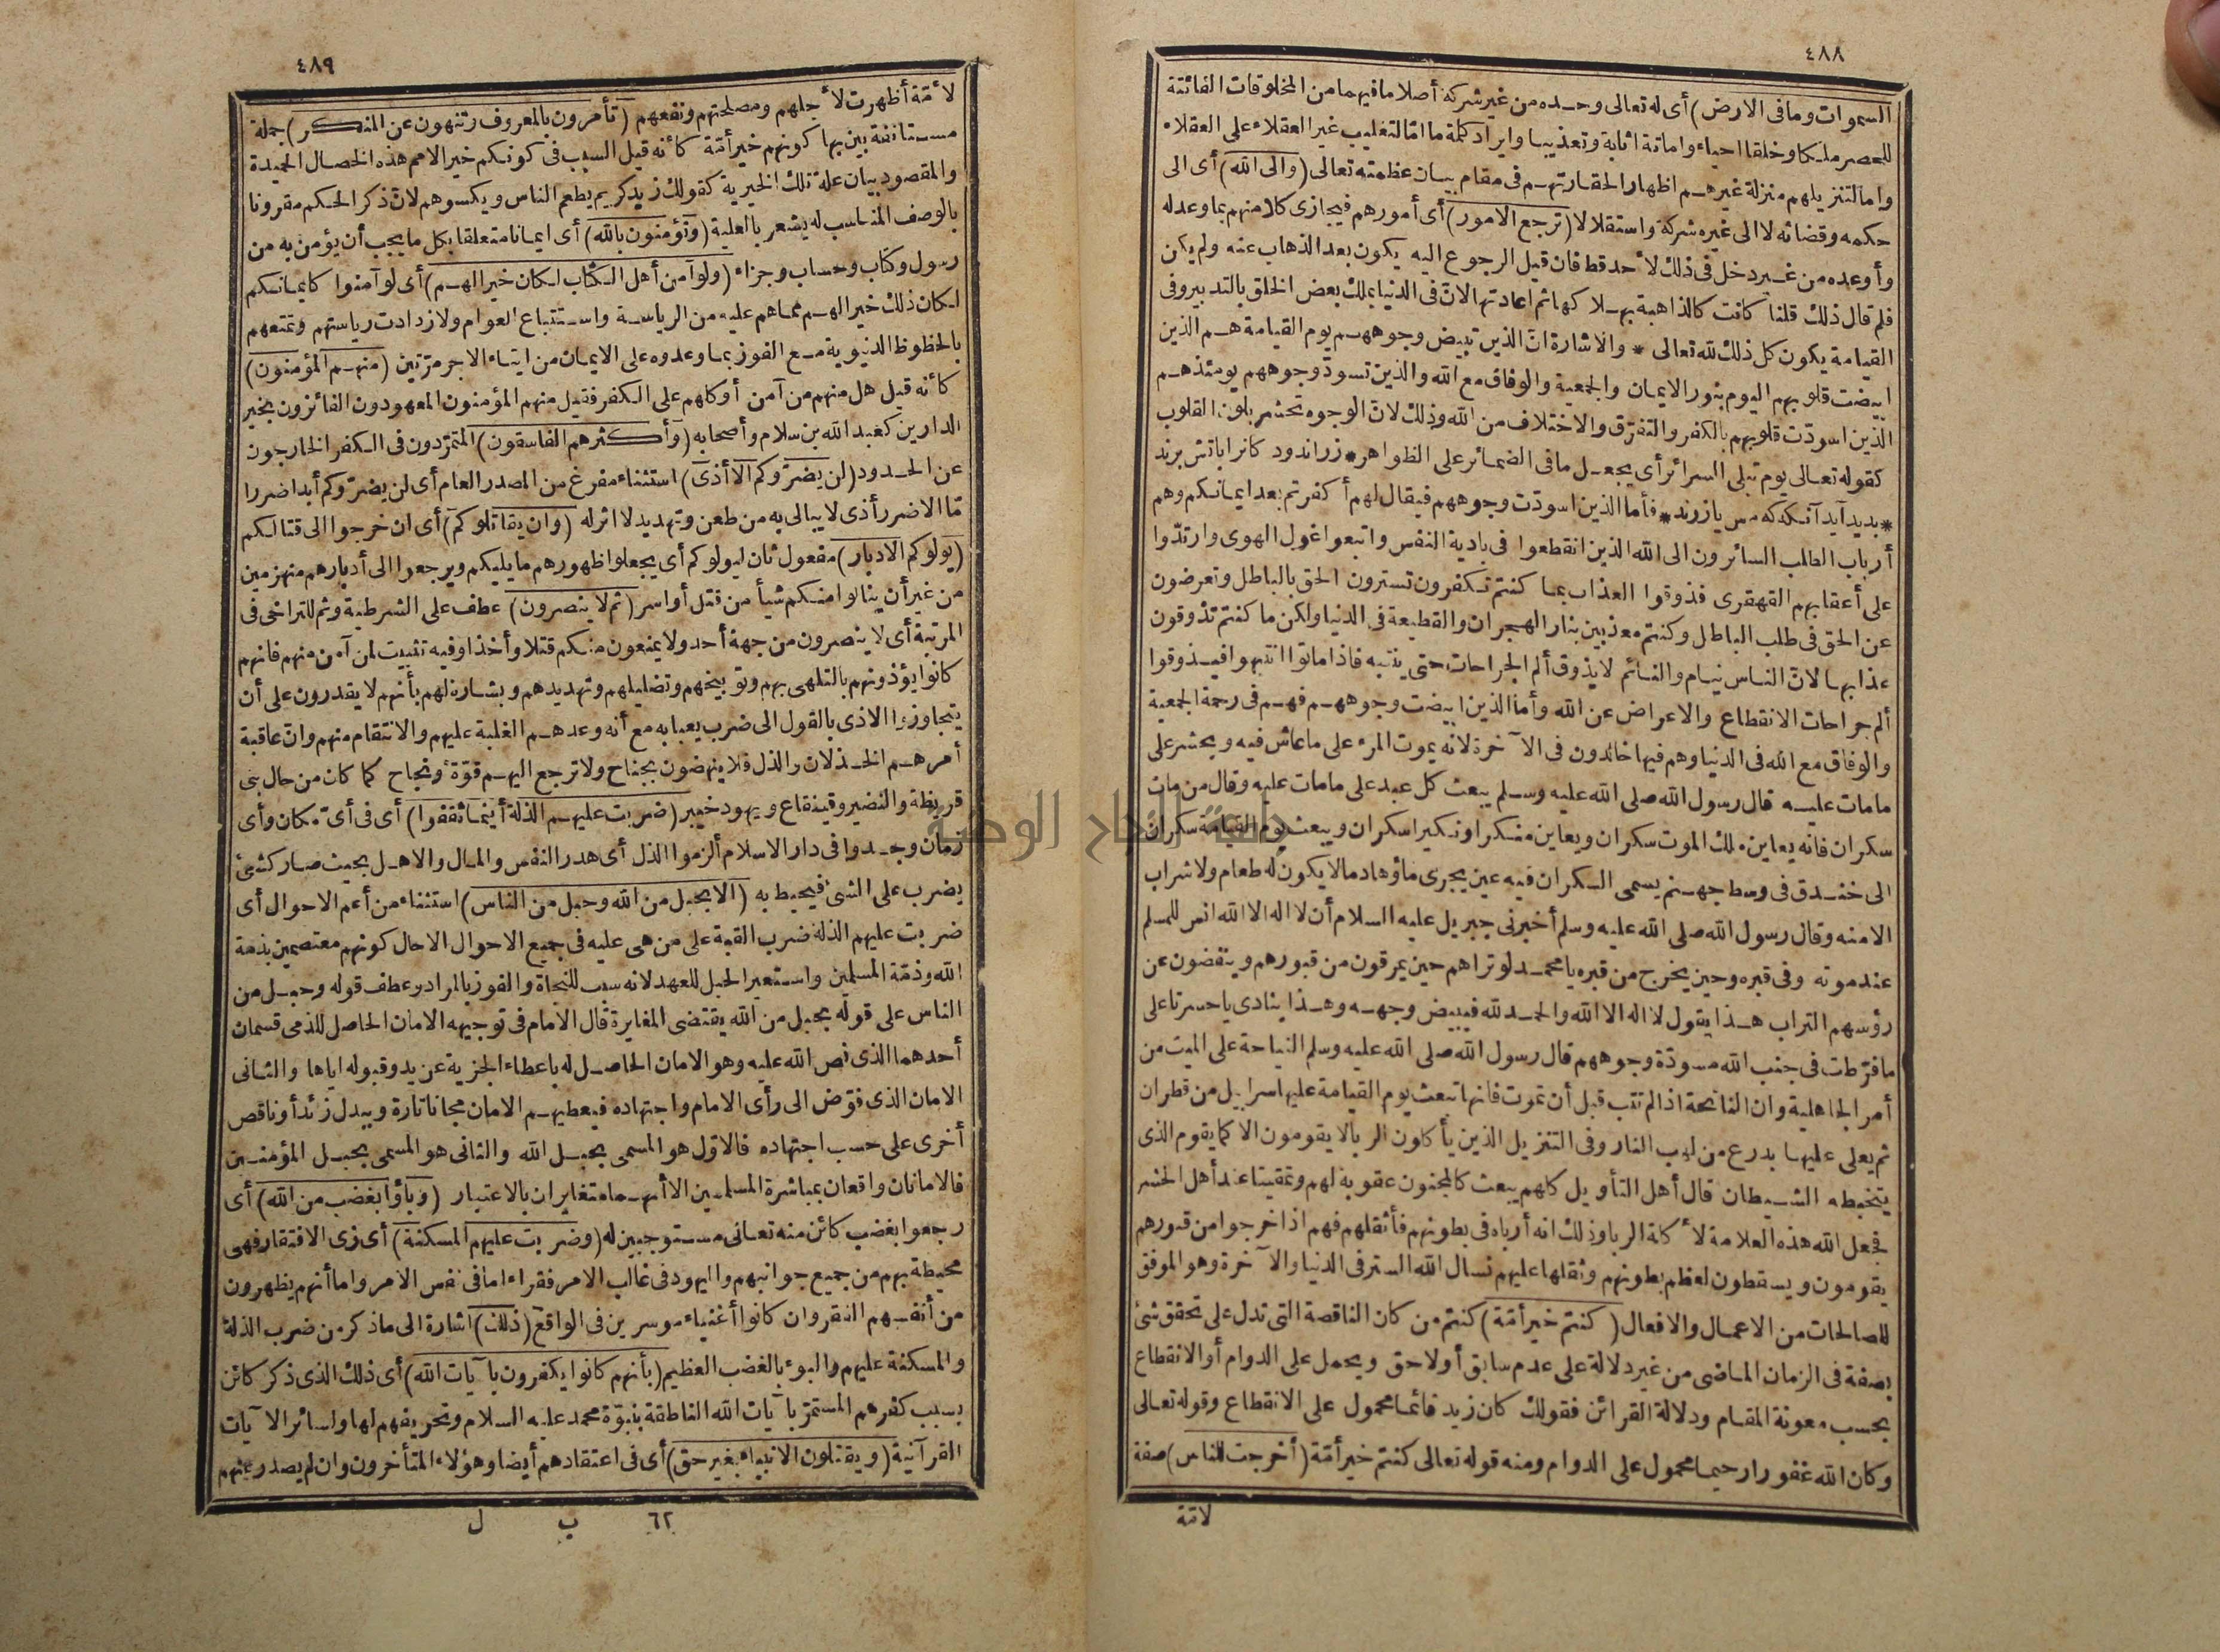 ٤٨٨
السموات وما فى الارض) أى له تعالى وحده من غير شركة أصلا ما فيهما من المخلوقات الفائتة
للحصر ملكا وخلقا احياء واماتة اثابة وتعذيبا وايراد كلمة ما اما لتغليب غير العقلاء على العقلاء
واما لتنزيلهم منزلة غيرهم اظهارا لحقارتهم فى مقام بيان عظمته تعالى (والى الله) أى الى
حكمه وقضائه لا الى غيره شركة واستقلالا (ترجع الامور) أى أمورهم فيجازى كلا منهم بما وعد له
وأوعده من غير دخل فى ذلك لأحد قط فان قيل الرجوع اليه يكون بعد الذهاب عنه ولم يكن
فلم قال ذلك قلنا كانت كالذاهبة بهلاكها ثم اعادتها لانّ فى الدنيا يملك بعض الخلق بالتدبير وفى
القيامة يكون كل ذلك لله تعالى * والاشارة انّ الذين تبيض وجوههم يوم القيامة هم الذين
ابيضت قلوبهم اليوم بنور الايمان والجمعية والوفاق مع الله والذين تسودّ وجوههم يومئذ هم
الذين اسودّت قلوبهم بالكفر والتفرّق والاختلاف من الله وذلك لانّ الوجوه تحشر بلون القلوب
كقوله تعالى يوم تبلى السرائر أى يجعل ما فى الضمائر على الظواهر * زر اندود كانرا باتش برند
* بديد آيد آنكه كه مس يا زرند * فأما الذين اسودّت وجوههم فيقال لهم أكفرتم بعد ايمانكم وهم
أرباب الطلب السائرون الى الله الذين انقطعوا فى بادية النفس واتبعوا غول الهوى وارتدّوا
على أعقابهم القهقرى فذوقوا العذاب بما كنتم تكفرون تسترون الحق بالباطل وتعرضون
عن الحق فى طلب الباطل وكنتم معذبين بنار الهجران والقطيعة فى الدنيا ولكن ما كنتم تذوقون
عذابها لانّ الناس نيام والنائم لا يذوق ألم الجراحات حتى ينتبه فاذا ماتوا انتبهوا فيذوقوا
ألم جراحات الانقطاع والاعراض عن الله وأما الذين ابيضت وجوههم فهم فى رحمة الجمعية
والوفاق مع الله فى الدنيا وهم فيها خالدون فى الآخرة لانه يموت المرء على ما عاش فيه ويحشر على
ما مات عليه قال رسول الله صلى الله عليه وسلم يبعث كل عبد على ما مات عليه وقال من مات
سكران فانه يعاين ملك الموت سكران ويعاين منكرا ونكيرا سكران ويبعث يوم القيامة سكران
الى خندق فى وسط جهنم يسمى السكران فيه عين يجرى ماؤها دما لا يكون له طعام ولا شراب
الا منه وقال رسول الله صلى الله عليه وسلم أخبرنى جبريل عليه السلام أن لا اله الا الله انس للمسلم
عند موته وفى قبره وحين يخرج من قبره يا محمد لو تراهم حين يمرقون من قبورهم وينفضون عن
رؤسهم التراب هذا يقول لا اله الا الله والحمد لله فيبيض وجهه وهذا ينادى يا حسرتا على
ما فرّطت فى جنب الله مسودّة وجوههم قال رسول الله صلى الله عليه وسلم النياحة على الميت من
أمر الجاهلية وان النائحة اذا لم تتب قبل أن تموت فانها تبعث يوم القيامة عليها سرابيل من قطران
ثم يعلى عليها بدرع من لهب النار وفى التنزيل الذين يأكلون الربا لا يقومون الا كما يقوم الذى
يتخبطه الشيطان قال أهل التأويل كلهم يبعث كالمجنون عقوبة لهم وتمقيتا عند أهل الحشر
فجعل الله هذه العلامة لأكلة الربا وذلك انه أرباه فى بطونهم فأثقلهم فهم اذا خرجوا من قبورهم
يقومون ويسقطون لعظم بطونهم وثقلها عليهم نسال الله الستر فى الدنيا والآخرة وهو الموفق
للصالحات من الاعمال والافعال (كنتم خير أمّة) كنتم من كان الناقصة التى تدل على تحقق شئ
بصفة فى الزمان الماضى من غير دلالة على عدم سابق أو لاحق ويحمل على الدوام أو الانقطاع
بحسب معونة المقام ودلالة القرائن فقولك كان زيد قائما محمول على الانقطاع وقوله تعالى
وكان الله غفورا رحيما محمول على الدوام ومنه قوله تعالى كنتم خير أمّة (أخرجت للناس) صفة
لامّة
٤٨٩
لأمّة أظهرت لأجلهم ومصلحتهم ونفعهم (تأمرون بالمعروف وتنهون عن المنكر) جملة
مستانفة بين بها كونهم خير أمّة كأنه قيل السبب فى كونكم خير الامم هذه الخصال الحميدة
والمقصود بيان علة تلك الخيرية كقولك زيد كريم يطعم الناس ويكسوهم لانّ ذكر الحكم مقرونا
بالوصف المناسب له يشعر بالعلية (وتؤمنون بالله) أى ايمانا متعلقا بكل ما يجب أن يؤمن به من
رسول وكتاب وحساب وجزاء (ولو آمن أهل الكتاب لكان خيرا لهم) أى لو آمنوا كايمانكم
لكان ذلك خيرا لهم مما هم عليه من الرياسة واستتباع العوام ولازدادت رياستهم وتمتعهم
بالحظوظ الدنيوية مع الفوز بما وعدوه على الايمان من ايتاء الاجر مرّتين (منهم المؤمنون)
كأنه قيل هل منهم من آمن أو كلهم على الكفر فقيل منهم المؤمنون المعهودون الفائزون بخير
الدارين كعبد الله بن سلام وأصحابه (وأكثرهم الفاسقون) المتمرّدون فى الكفر الخارجون
عن الحدود (لن يضرّوكم الا أذى) استثناء مفرغ من المصدر العام أى لن يضرّوكم أبدا ضررا
مّا الا ضرر أذى لا يبالى به من طعن وتهديد لا اثر له (وان يقاتلوكم) أى ان خرجوا الى قتالكم
(يولوكم الادبار) مفعول ثان ليولوكم أى يجعلوا ظهورهم ما يليكم ويرجعوا الى أدبارهم منهزمين
من غير أن ينالوا منكم شيأ من قتل أو اسر (ثم لا ينصرون) عطف على الشرطية وثم للتراخى فى
المرتبة أى لا ينصرون من جهة أحد ولا يمنعون منكم قتلا وأخذا وفيه تثبيت لمن آمن منهم فانهم
كانوا يؤذونهم بالتلهى بهم وتوبيخهم وتضليلهم وتهديدهم وبشارة لهم بأنهم لا يقدرون على أن
يتجاوزوا الاذى بالقول الى ضرب يعبا به مع أنه وعدهم الغلبة عليهم والانتقام منهم وانّ عاقبة
أمرهم الخذلان والذل فلا ينهضون بجناح ولا ترجع اليهم قوّة ونجاح كما كان من حال بنى
قريظة والنضير وقينقاع ويهود خيبر (ضربت عليهم الذلة أينما ثقفوا) أى فى أىّ مكان وأى
زمان وجدوا فى دار الاسلام ألزموا الذل أى هدر النفس والمال والاهل بحيث صار كشئ
يضرب على الشئ فيحيط به (الا بحبل من الله وحبل من الناس) استثناء من أعم الاحوال أى
ضربت عليهم الذلة ضرب القبة على من هى عليه فى جميع الاحوال الا حال كونهم معتصمين بذمة
الله وذمّة المسلمين واستعير الحبل للعهد لانه سبب للنجاة والفوز بالمراد وعطف قوله وحبل من
الناس على قوله بحبل من الله يقتضى المغايرة قال الامام فى توجيهه الامان الحاصل للذمى قسمان
أحدهما الذى نص الله عليه وهو الامان الحاصل له باعطاء الجزية عن يد وقبوله اياها والثانى
الامان الذى فوّض الى رأى الامام واجتهاده فيعطيهم الامان مجانا تارة وببدل زائد أو ناقص
أخرى على حسب اجتهاده فالاوّل هو المسمى بحبل الله والثانى هو المسمى بحبل المؤمنين
فالامانان واقعان بمباشرة المسلمين الا أنهما متغايران بالاعتبار (وباؤا بغضب من الله) أى
رجعوا بغضب كائن منه تعالى مستوجبين له (وضربت عليهم المسكنة) أى زى الافتقار فهى
محيطة بهم من جميع جوانبهم واليهود فى غالب الامر فقراء اما فى نفس الامر واما أنهم يظهرون
من أنفسهم الفقر وان كانوا أغنياء موسرين فى الواقع (ذلك) اشارة الى ما ذكر من ضرب الذلة
والمسكنة عليهم والبوء بالغضب العظيم (بأنهم كانوا يكفرون بآيات الله) أى ذلك الذى ذكر كائن
بسبب كفرهم المستمرّ بآيات الله الناطقة بنبوّة محمد عليه السلام وتحريفهم لها ولسائر الآيات
القرآنية (ويقتلون الانبياء بغير حق) أى فى اعتقادهم أيضا وهؤلاء المتأخرون وان لم يصدر عنهم
٦٢ ب ل